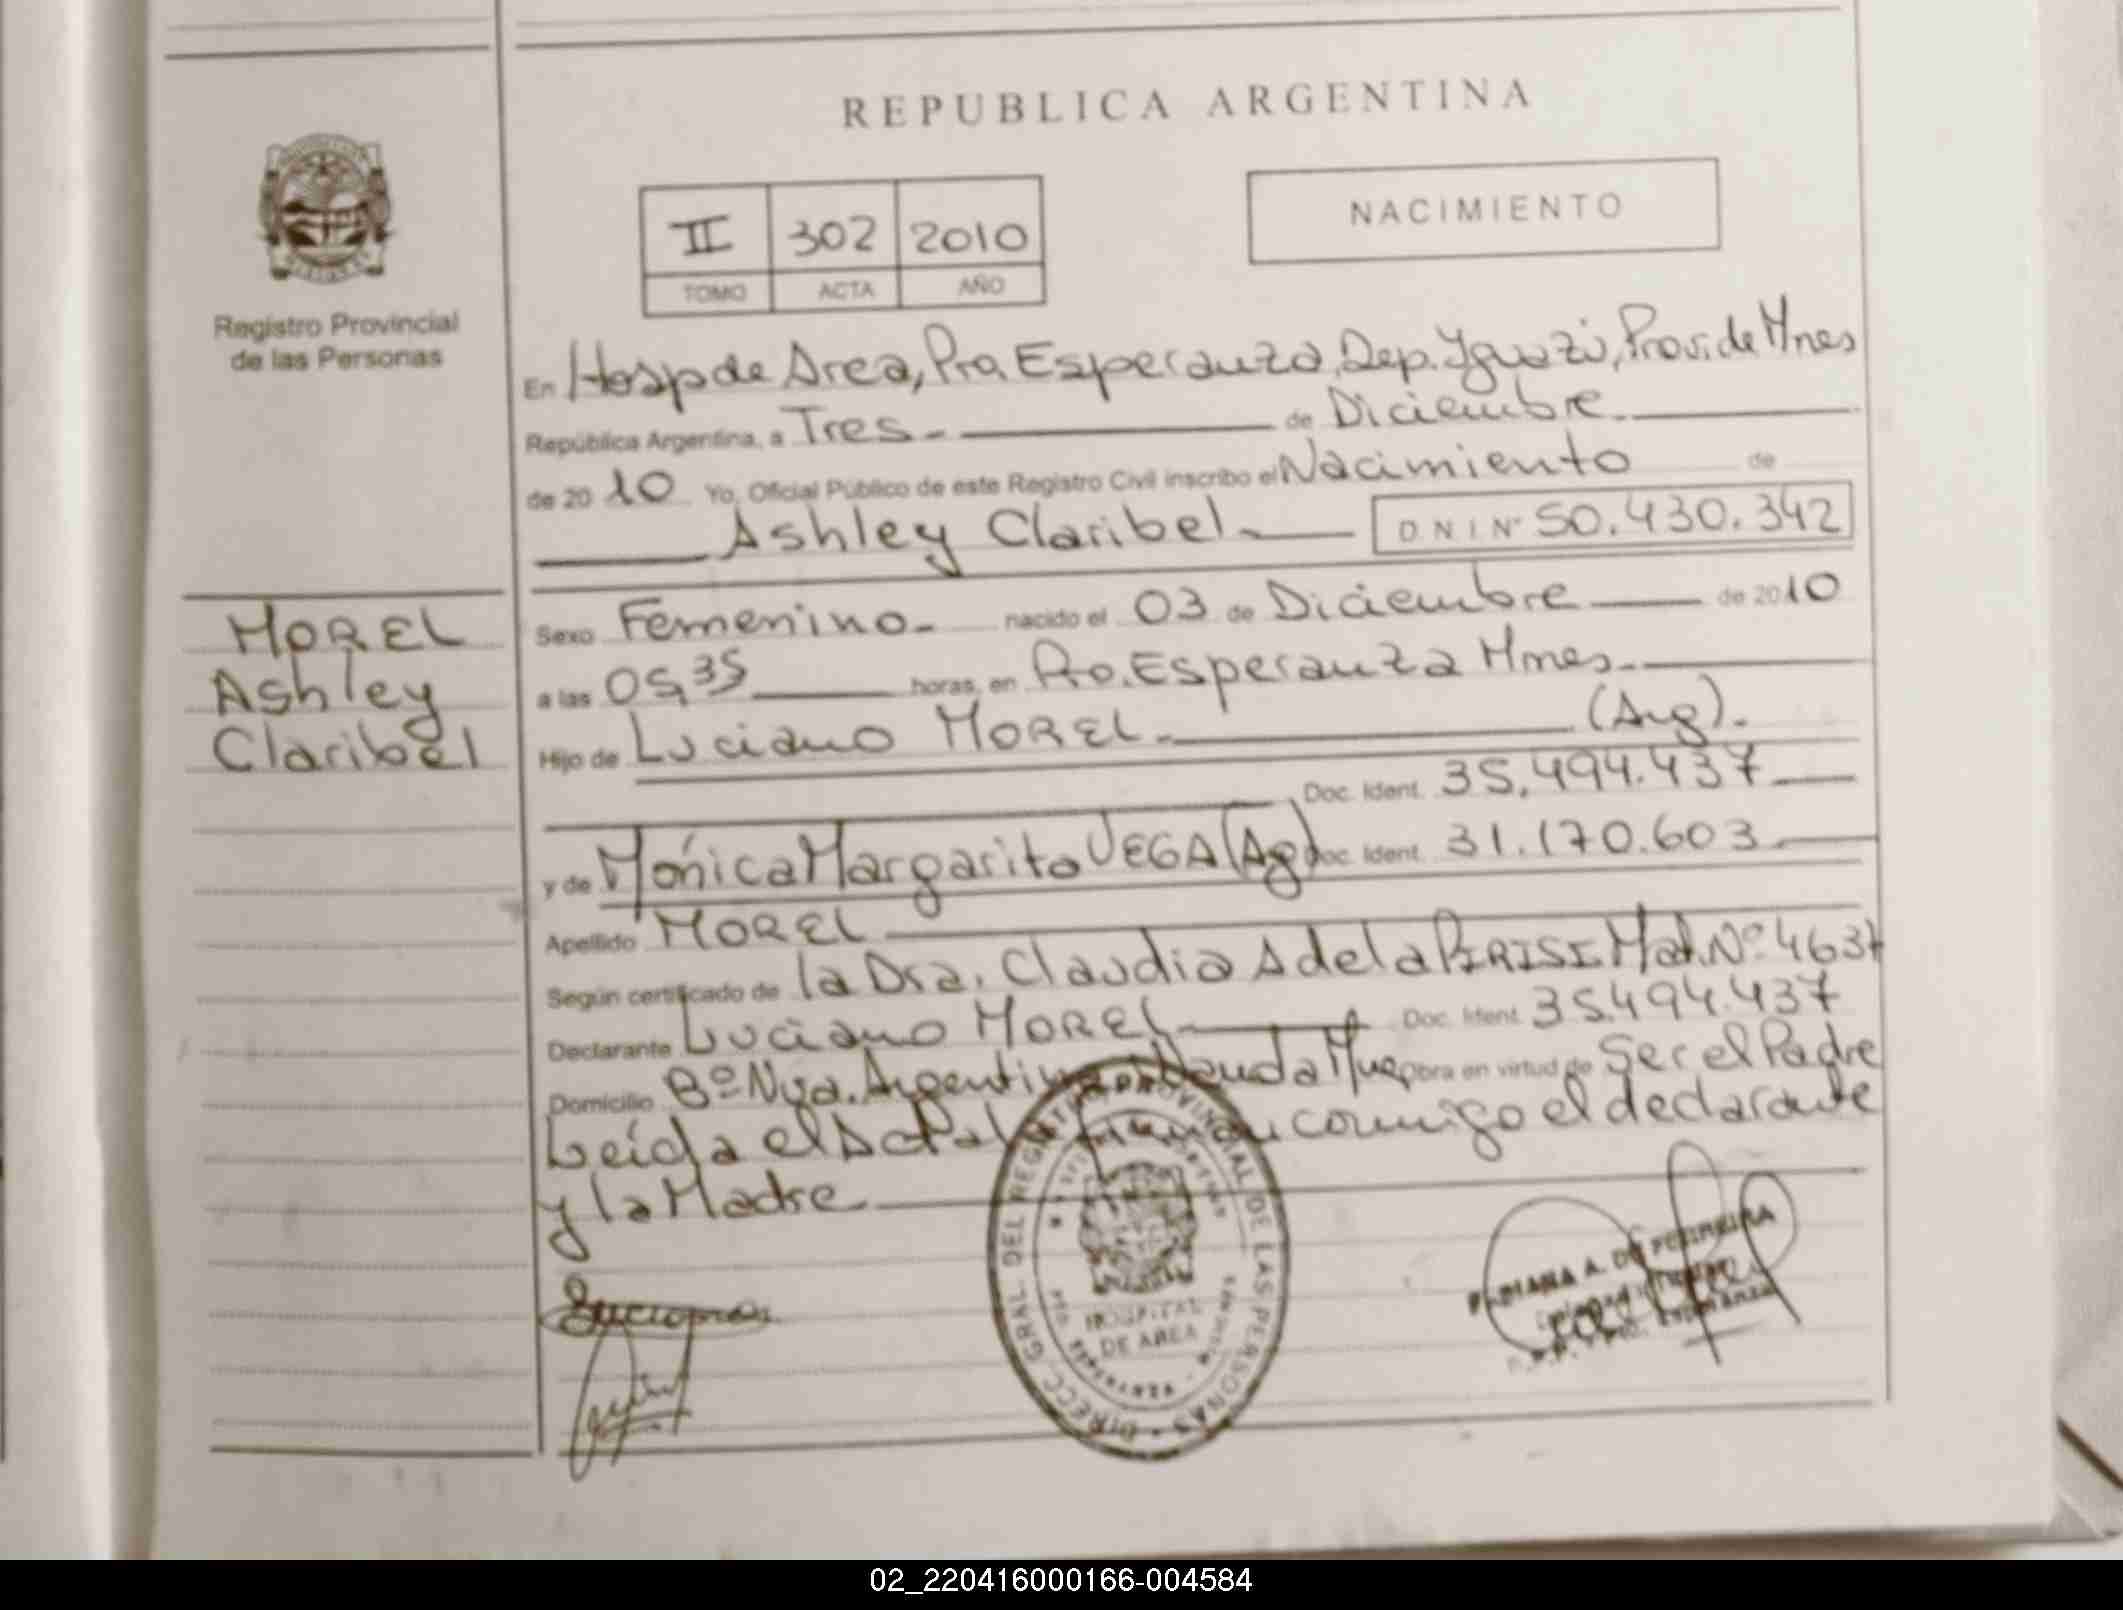 REPUBLICA ARGENTINA
NACIMIENTO
II 302 2010
TOMO ACTA AÑO
Registro Provincial
de las Personas
En Hosp de Area, Pto. Esperanza, Dep. Iguazú, Prov. de Mnes
República Argentina, a Tres.- de Diciembre
de 2010 Yo, Oficial Público de este Registro Civil inscribo el Nacimiento de
Ashley Claribel D N I Nº 50.430.342
MOREL
Ashley
Claribel
Sexo Femenino.- nacido el 03 de Diciembre de 2010
a las 05,35 horas, en Pto. Esperanza Mnes.
Hijo de Luciano MOREL. (Arg).
Doc. Ident. 35.494.437
y de Mónica Margarita VEGA (Ag) Doc. Ident. 31.170.603
Apellido MOREL
Según certificado de la Dra. Claudia Adela PIRISI Mat. Nº 4637
Declarante Luciano MOREL Doc. Ident. 35.494.437
Domicilio Bº Nva. Argentina Obra en virtud de Ser el Padre
Leída el Acta conmigo el declarante
y la Madre
DIRECC. GRAL. DEL REGISTRO PROVINCIAL DE LAS PERSONAS
HOSPITAL
DE AREA
02_220416000166-004584